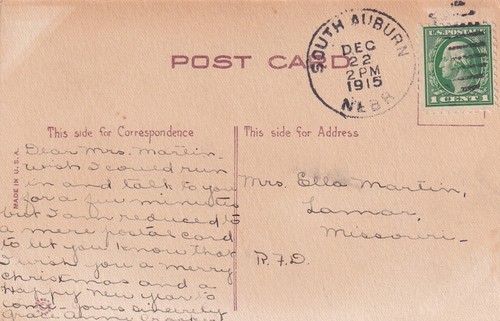 POST CARD
SOUTH AUBURN
DEC
22
2 PM
1915
NEBR
U.S. POSTAGE
1 CENT 1
This side for Correspondence
This side for Address
MADE IN U.S.A.
Dear Mrs. Martin-
wish I could run
in and talk to you
for a few minutes
but I am reduced to
a mere postal card
to let you know that
I wish you a merry
christmas and a
Happy new year to
come. yours sincerely
Grace Anne
Mrs. Ella Martin,
Lamar,
Missouri-
R.F.D.